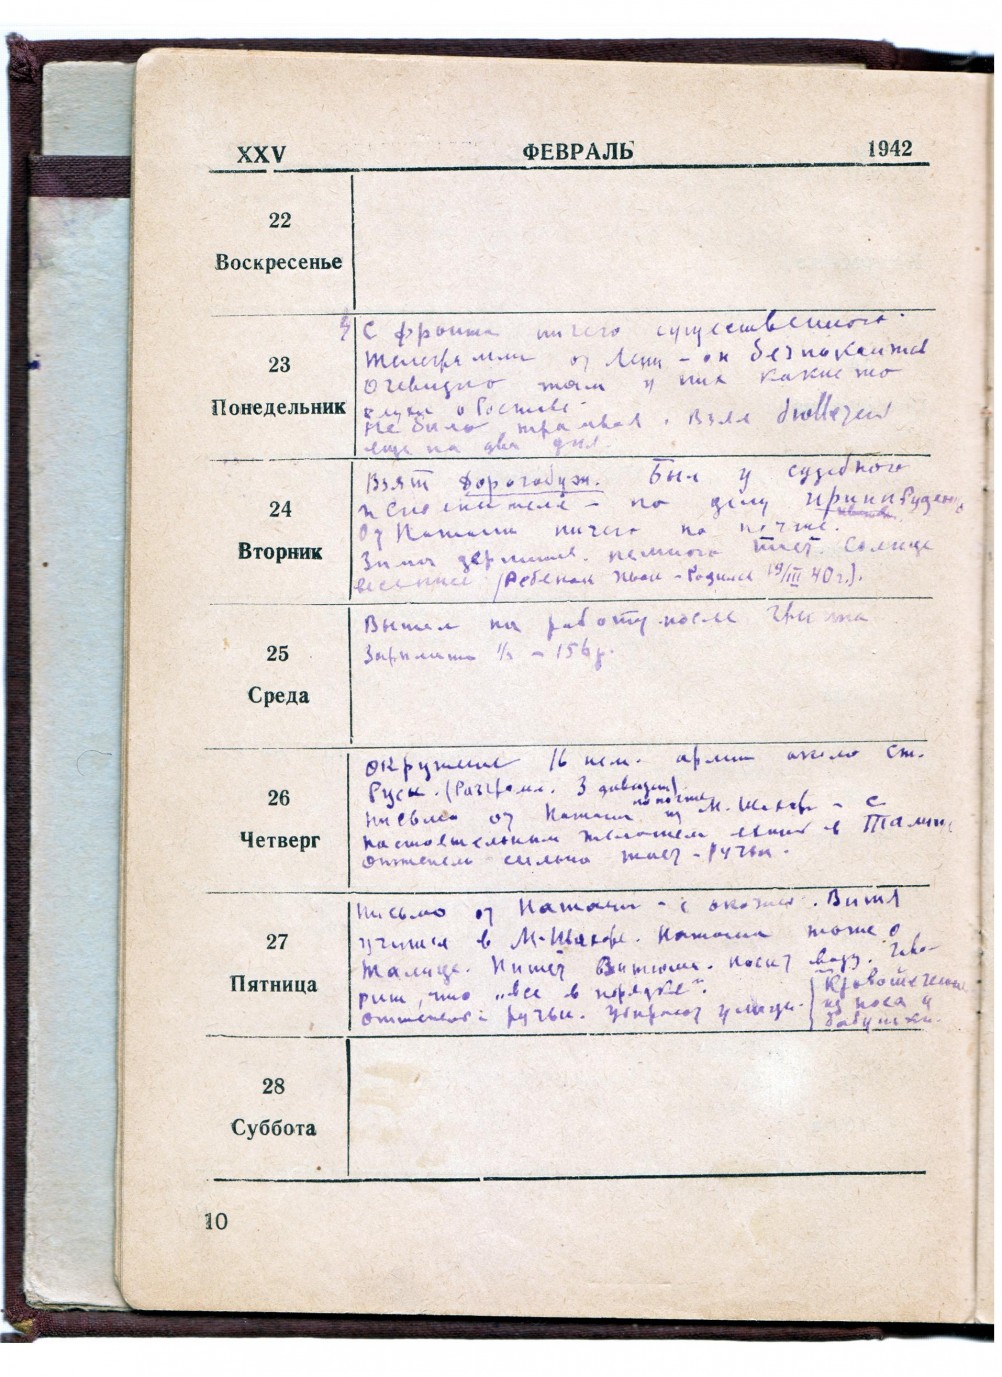 XXV ФЕВРАЛЬ 1942
22
Воскресенье
23
Понедельник
С фронта ничего существенного.
Телеграмма от Лени - он безпокоится
очевидно там у них какие то
слухи о Ростове.
Не было трамвая. Взял бюллетень
еще на два дня.
24
Вторник
Взят Дорогобуж. Был у судебного
исполнителя - по делу
От Наташи ничего по почте.
Зима держится. немного тает. Солнце
весеннее (Ребенок - Родился 19/III 40 г.).
25
Среда
Вышел на работу после гриппа
Зарплата - 156 р.
26
Четверг
Окружение 16 нем. армии около Ст.
Руссы. (Разгром. 3 дивизий).
по почте
Письмо от Наташи из М. - с
настоятельным желанием ехать в
Оттепель сильно тает - Ручьи.
27
Пятница
Письмо от Наташи - с оказией. Витя
учится в М. Наташа тоже о
Пишет Витюша. носит воду. Гово-
рит, что "все в порядке".
Оттепель ручьи. Убирают улицы.
Кровотечение
из носа у
бабушки.
28
Суббота
10